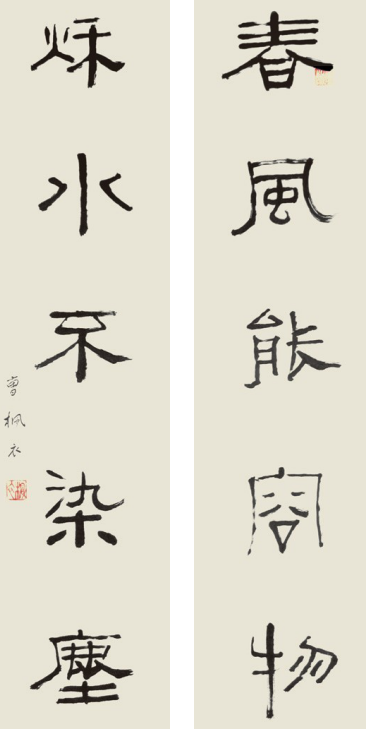 春風能容物
秌水不染塵
曾楓衣